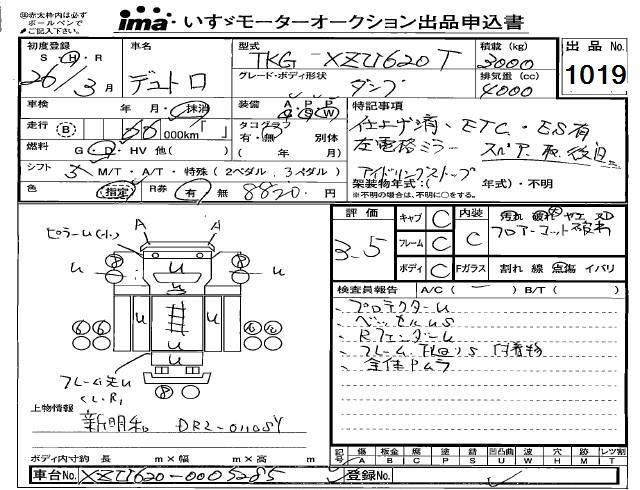 ㊟赤太枠内は必ず
ボールペンで
ご記入下さい。
ima いすゞモーターオークション出品申込書
出品 No.
1019
初度登録
S・H・R
26/3月
車名
デュトロ
型式
TKG-XZU620T
グレード・ボディ形状
ダンプ
積載(kg)
3000
排気量(cc)
4000
車検
年・月・抹消
装備
A・P・P
C・S・W
特記事項
仕上ゲ済、ETC・ES有
左電格ミラー
アイドリングストップ
走行 B
000km「 」
タコグラフ
有・無 別体
( 年 月)
燃料
G・D・HV 他( )
シフト
5 M/T・A/T・特殊(2ペダル、3ペダル)
架装物年式:( 年式)・不明
※不明の場合は、不明に○をする。
色
指定
R券 有 無 8820・円
評価
3.5
キャブ C
フレーム C
ボディ C
内装
C
Fガラス 割れ 線 点傷 イバリ
フロアーマット
検査員報告 A/C( ) B/T( )
、プロテクターU
、ベッセルUS
、RフェンダーU
、フレーム、下回りS 付着物
、全体Pムラ
A A
ピラーU(小)
U U U
8 8
U U
6 6
U
フレーム先U
8
上物情報
新明和 DR2-01108SY
ボディ内寸約 長 m×幅 m×高 m
記号 傷 板金 腐 塗 錆 凹凸曲 波 穴 跡 レンズ割
A B C P S U W H M T
車台No. XZU620-0005285
登録No.